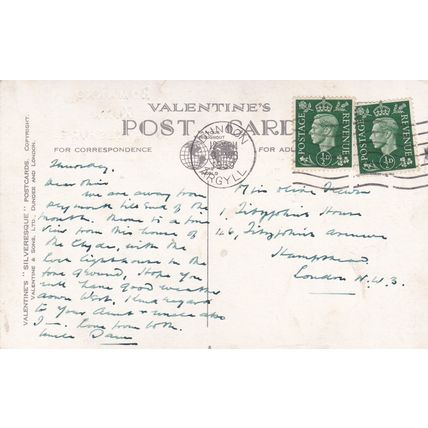 VALENTINE'S
POST CARD
FOR CORRESPONDENCE
FOR AD
VALENTINE'S "SILVERESQUE" POSTCARDS. COPYRIGHT.
VALENTINE & SONS, LTD., DUNDEE AND LONDON.
DUNOON
ARGYLL
POSTAGE REVENUE
½D
POSTAGE REVENUE
½D
Thursday.
Dear
We are away from
till end of the
month. There is a fine
view from this house of
the Clyde, with the
Lighthouse in the
fore ground. Hope you
will have good weather
down West. Kind regards
to your Aunt & Uncle also
Love from both.
Uncle
Miss Olive
1, Fitzjohn's House
Fitzjohn's Avenue
Hampstead
London N.W.3.